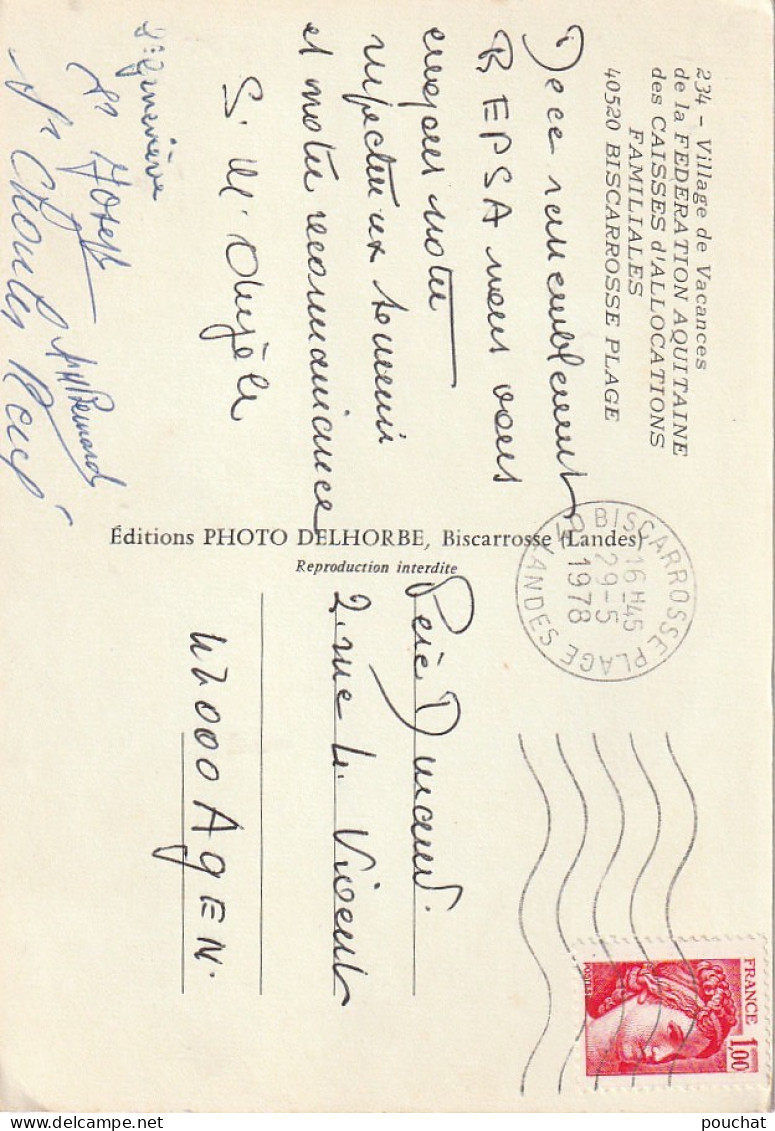 234 - Village de Vacances
de la FEDERATION AQUITAINE
des CAISSES d'ALLOCATIONS
FAMILIALES
40520 BISCARROSSE PLAGE
De ce rassemblement
REPSA nous vous
envoyons notre
respectueux souvenir
et notre reconnaissance
S. M. Angèle
Sr Geneviève
Sr Joseph
Sr M Bernard
Sr Charles René
Éditions PHOTO DELHORBE, Biscarrosse (Landes)
Reproduction interdite
40 BISCARROSSE PLAGE
LANDES
16H45
29-5
1978
Père Durand
2, rue St. Vincent
47000 AGEN.
FRANCE
1,00
POSTES
pouchat